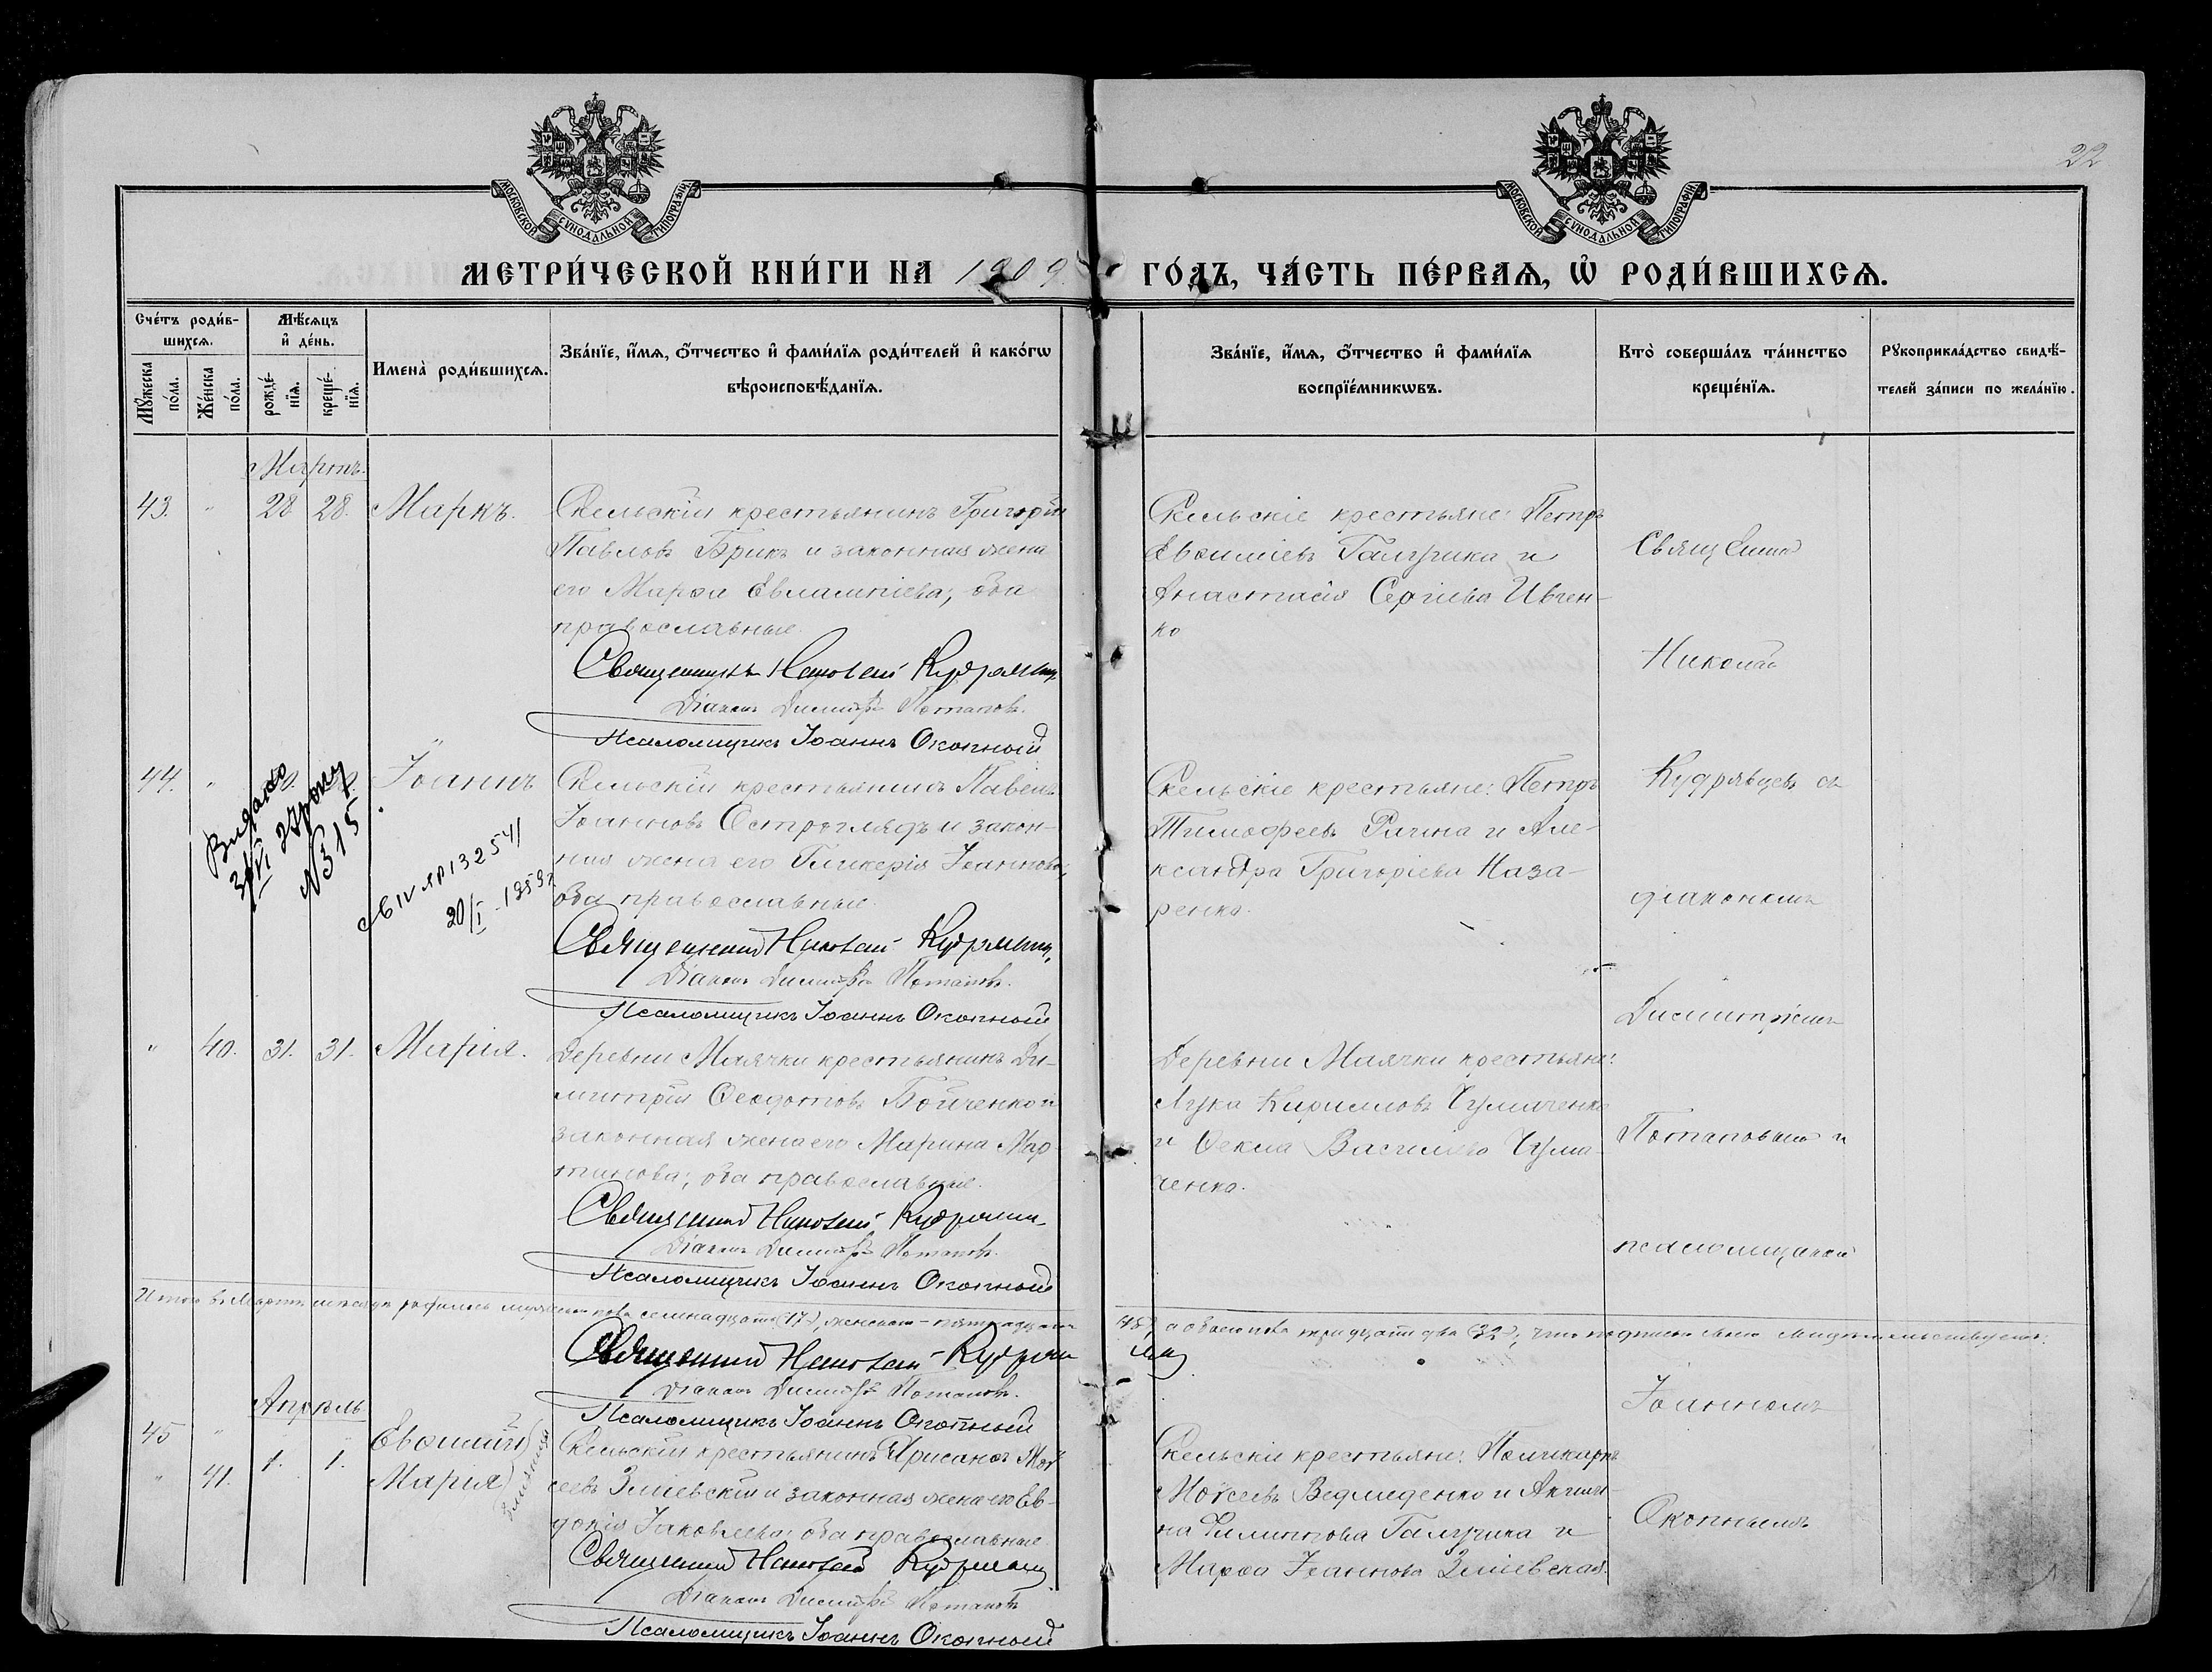 22
МОСКОВСКОЙ СѴНОДАЛЬНОЙ ТИПОГРАФЇИ
МОСКОВСКОЙ СѴНОДАЛЬНОЙ ТИПОГРАФЇИ
МЕТРИ́ЧЕСКОЙ КНИ́ГИ НА 1909
ГО́ДЪ, ЧА́СТЬ ПЕ́РВАѦ, Ѽ РОДИ́ВШИХСѦ.
Сче́тъ роди́в-
шихсѧ.
Мꙋ́жеска по́ла.
Же́нска по́ла.
Мѣ́сѧцъ
и҆ де́нь.
рожде́-
нїѧ.
креще́-
нїѧ.
Имена̀ роди́вшихсѧ.
Зва́нїе, и҆́мѧ, ѻ҆́тчество и҆ фами́лїѧ роди́телей и҆ како́гѡ
вѣроисповѣ́данїѧ.
Зва́нїе, и҆́мѧ, ѻ҆́тчество и҆ фами́лїѧ
воспрїе́мникѡвъ.
Кто̀ соверша́лъ та́инство
креще́нїѧ.
Рꙋкоприкла́дство свидѣ́-
телей за́писи по жела́нїю.
Мартъ.
43. " 28 28. Маркъ.
Скельскій крестьянинъ Григорій
Павловъ Брикъ и законная жена
его Марѳа Евлампіева; оба
православные.
Священникъ Николай Кудрявцев
Діаконъ Димитрій Потаповъ.
Псаломщикъ Іоаннъ Окопный
Скельскіе крестьяне: Петръ
Евѳиміевъ Галушка и
Анастасія Сергіева Ивчен-
ко
44. " Іоаннъ
Видано
N315.
20/I - 1959
Скельскій крестьянинъ Павелъ
Іоанновъ Остроглядъ и закон-
ная жена его Гликерія Іоаннова,
оба православные.
Священникъ Николай Кудрявцев
Діаконъ Димитрій Потаповъ.
Псаломщикъ Іоаннъ Окопный
Скельскіе крестьяне: Петръ
Тимоѳеевъ и Але-
ксандра Григоріева Наза-
ренко.
" 40. 31. 31. Марія.
Деревни Маячки крестьянинъ Ди-
митрій Ѳеодотовъ Бойченко и
законная жена его Марина Мар-
тинова; оба православные.
Священникъ Николай Кудрявцев
Діаконъ Димитрій Потаповъ.
Псаломщикъ Іоаннъ Окопный
Деревни Маячки крестьяне:
Лука Кирилловъ Чумаченко
и Ѳекла Василіева Чума-
ченко.
Итого въ Мартѣ мѣсяцѣ родилось мужеска пола семнадцать (17), женскаго – пятнадцать
(15), а обоего пола тридцать два (32); что подписью своею свидѣтельствуемъ:
Священникъ Николай Кудрявцев
Діаконъ Димитрій Потаповъ.
Псаломщикъ Іоаннъ Окопный
Апрѣль
45 " Евѳимій
" 41. 1. 1. Марія
близнецы
Скельскій крестьянинъ Хрисанѳъ Мои-
сеевъ Зміевскій и законная жена его Ев-
докія Іаковлева; оба православные.
Священникъ Николай Кудрявцев
Діаконъ Димитрій Потаповъ
Псаломщикъ Іоаннъ Окопный
Скельскіе крестьяне: Поликарпъ
Моѵсеевъ Ведмеденко и Акили-
на Филиппова Галушка и
Марѳа Іоаннова Зміевская.
Священникъ
Николай
Кудрявцевъ съ
діакономъ
Димитріемъ
Потаповымъ и
псаломщикомъ
Іоанномъ
Окопнымъ